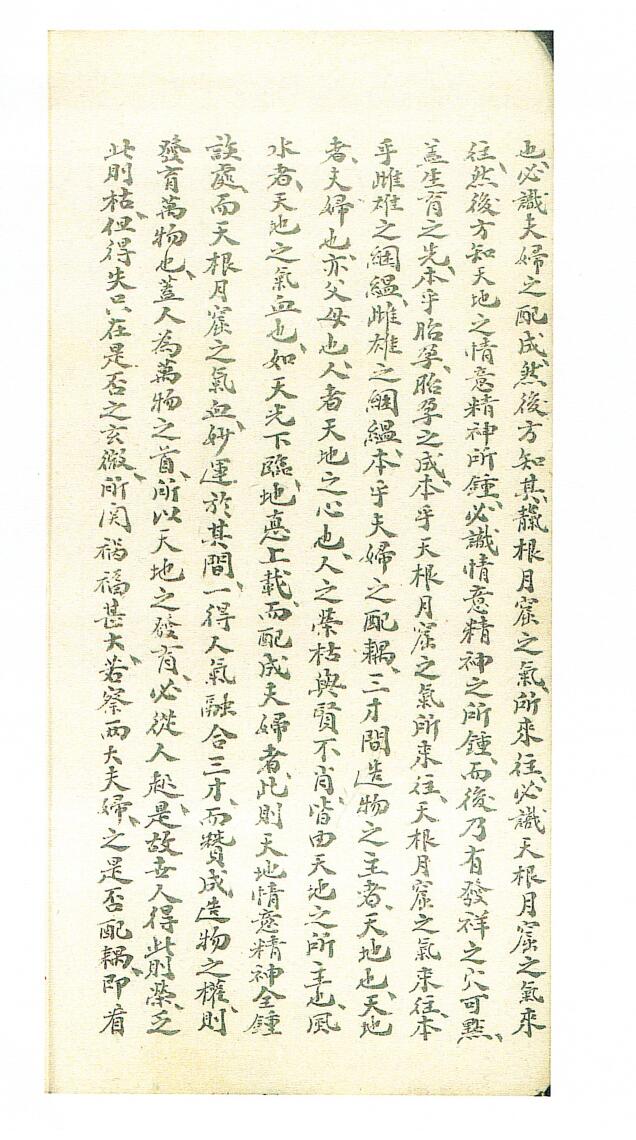 也、必識夫婦之配成、然後方知其天根月窟之氣所來往、必識天根月窟之氣來
往、然後方知天地之情意精神所鍾、必識情意精神之所鍾、而後乃有發祥之穴可點、
蓋生育之先、本乎胎孕、胎孕之成、本乎天根月窟之氣所來往、天根月窟之氣來往、本
乎雌雄之絪縕、雌雄之絪縕、本乎夫婦之配耦、三才間造物之主者、天地也、天地
者、夫婦也、亦父母也、人者天地之心也、人之榮枯與賢不肖、皆由天地之所主也、風
水者、天地之氣血也、如天光下臨、地德上載、而配成夫婦者、此則天地情意精神全鍾
該處、而天根月窟之氣血、妙運於其間、一得人氣融合三才、而贊成造物之權、則
發育萬物也、蓋人為萬物之首、所以天地之發育、必從人起、是故世人得此則榮、乏
此則枯、但得失只在是否之玄微、所関禍福甚大、若察兩大夫婦、之是否配耦、即看